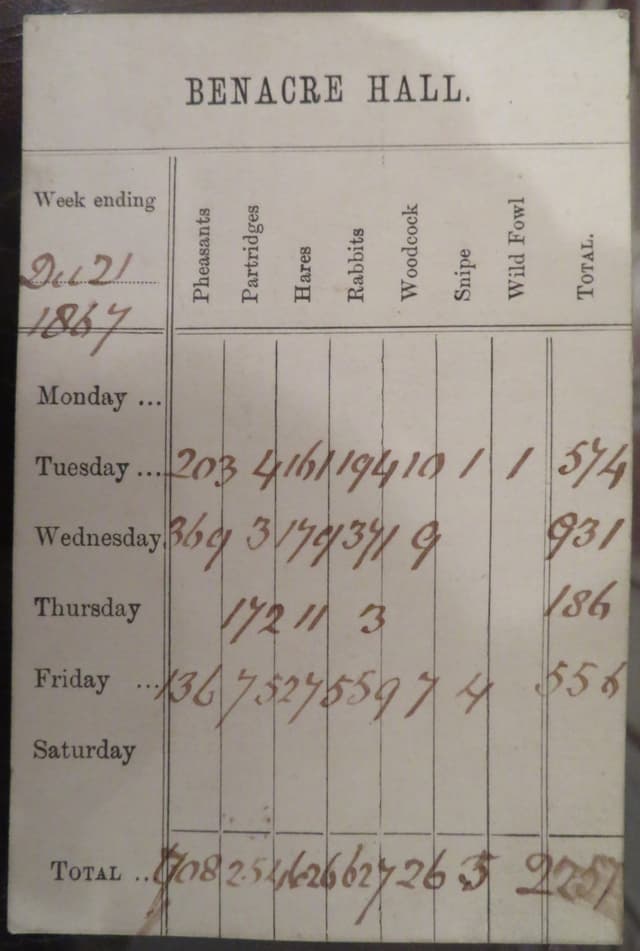 BENACRE HALL.
Week ending
Dec 21
1867
Pheasants
Partridges
Hares
Rabbits
Woodcock
Snipe
Wild Fowl
TOTAL.
Monday ...
Tuesday ... 203 4 161 194 10 1 1 574
Wednesday. 369 3 179 371 9 931
Thursday 172 11 3 186
Friday ... 136 75 275 59 7 4 556
Saturday
TOTAL .. 708 254 626 627 26 5